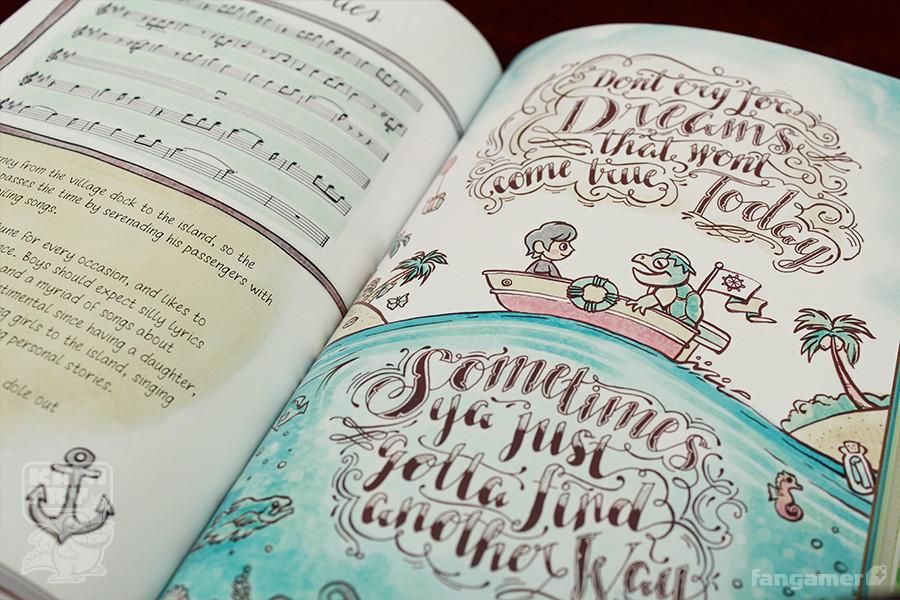 ney from the village dock to the island, so the
passes the time by serenading his passengers with
iling songs.
une for every occasion, and likes to
ce. Boys should expect silly lyrics
and a myriad of songs about
timental since having a daughter,
g girls to the island, singing
g personal stories.
dole out
Don't cry for
Dreams
that won't
come true
Today
Sometimes
ya just
gotta find
another
Way
fangamer